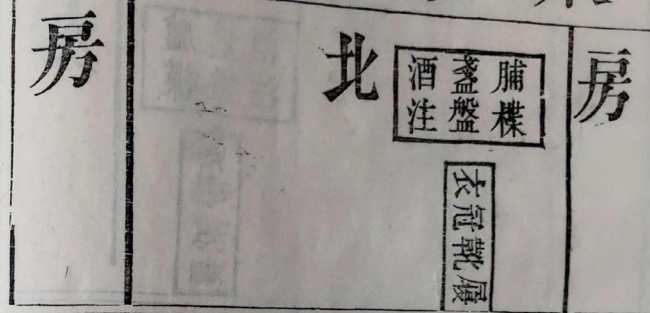 房
脯楪
盞盤
酒注
衣冠靴履
北
房